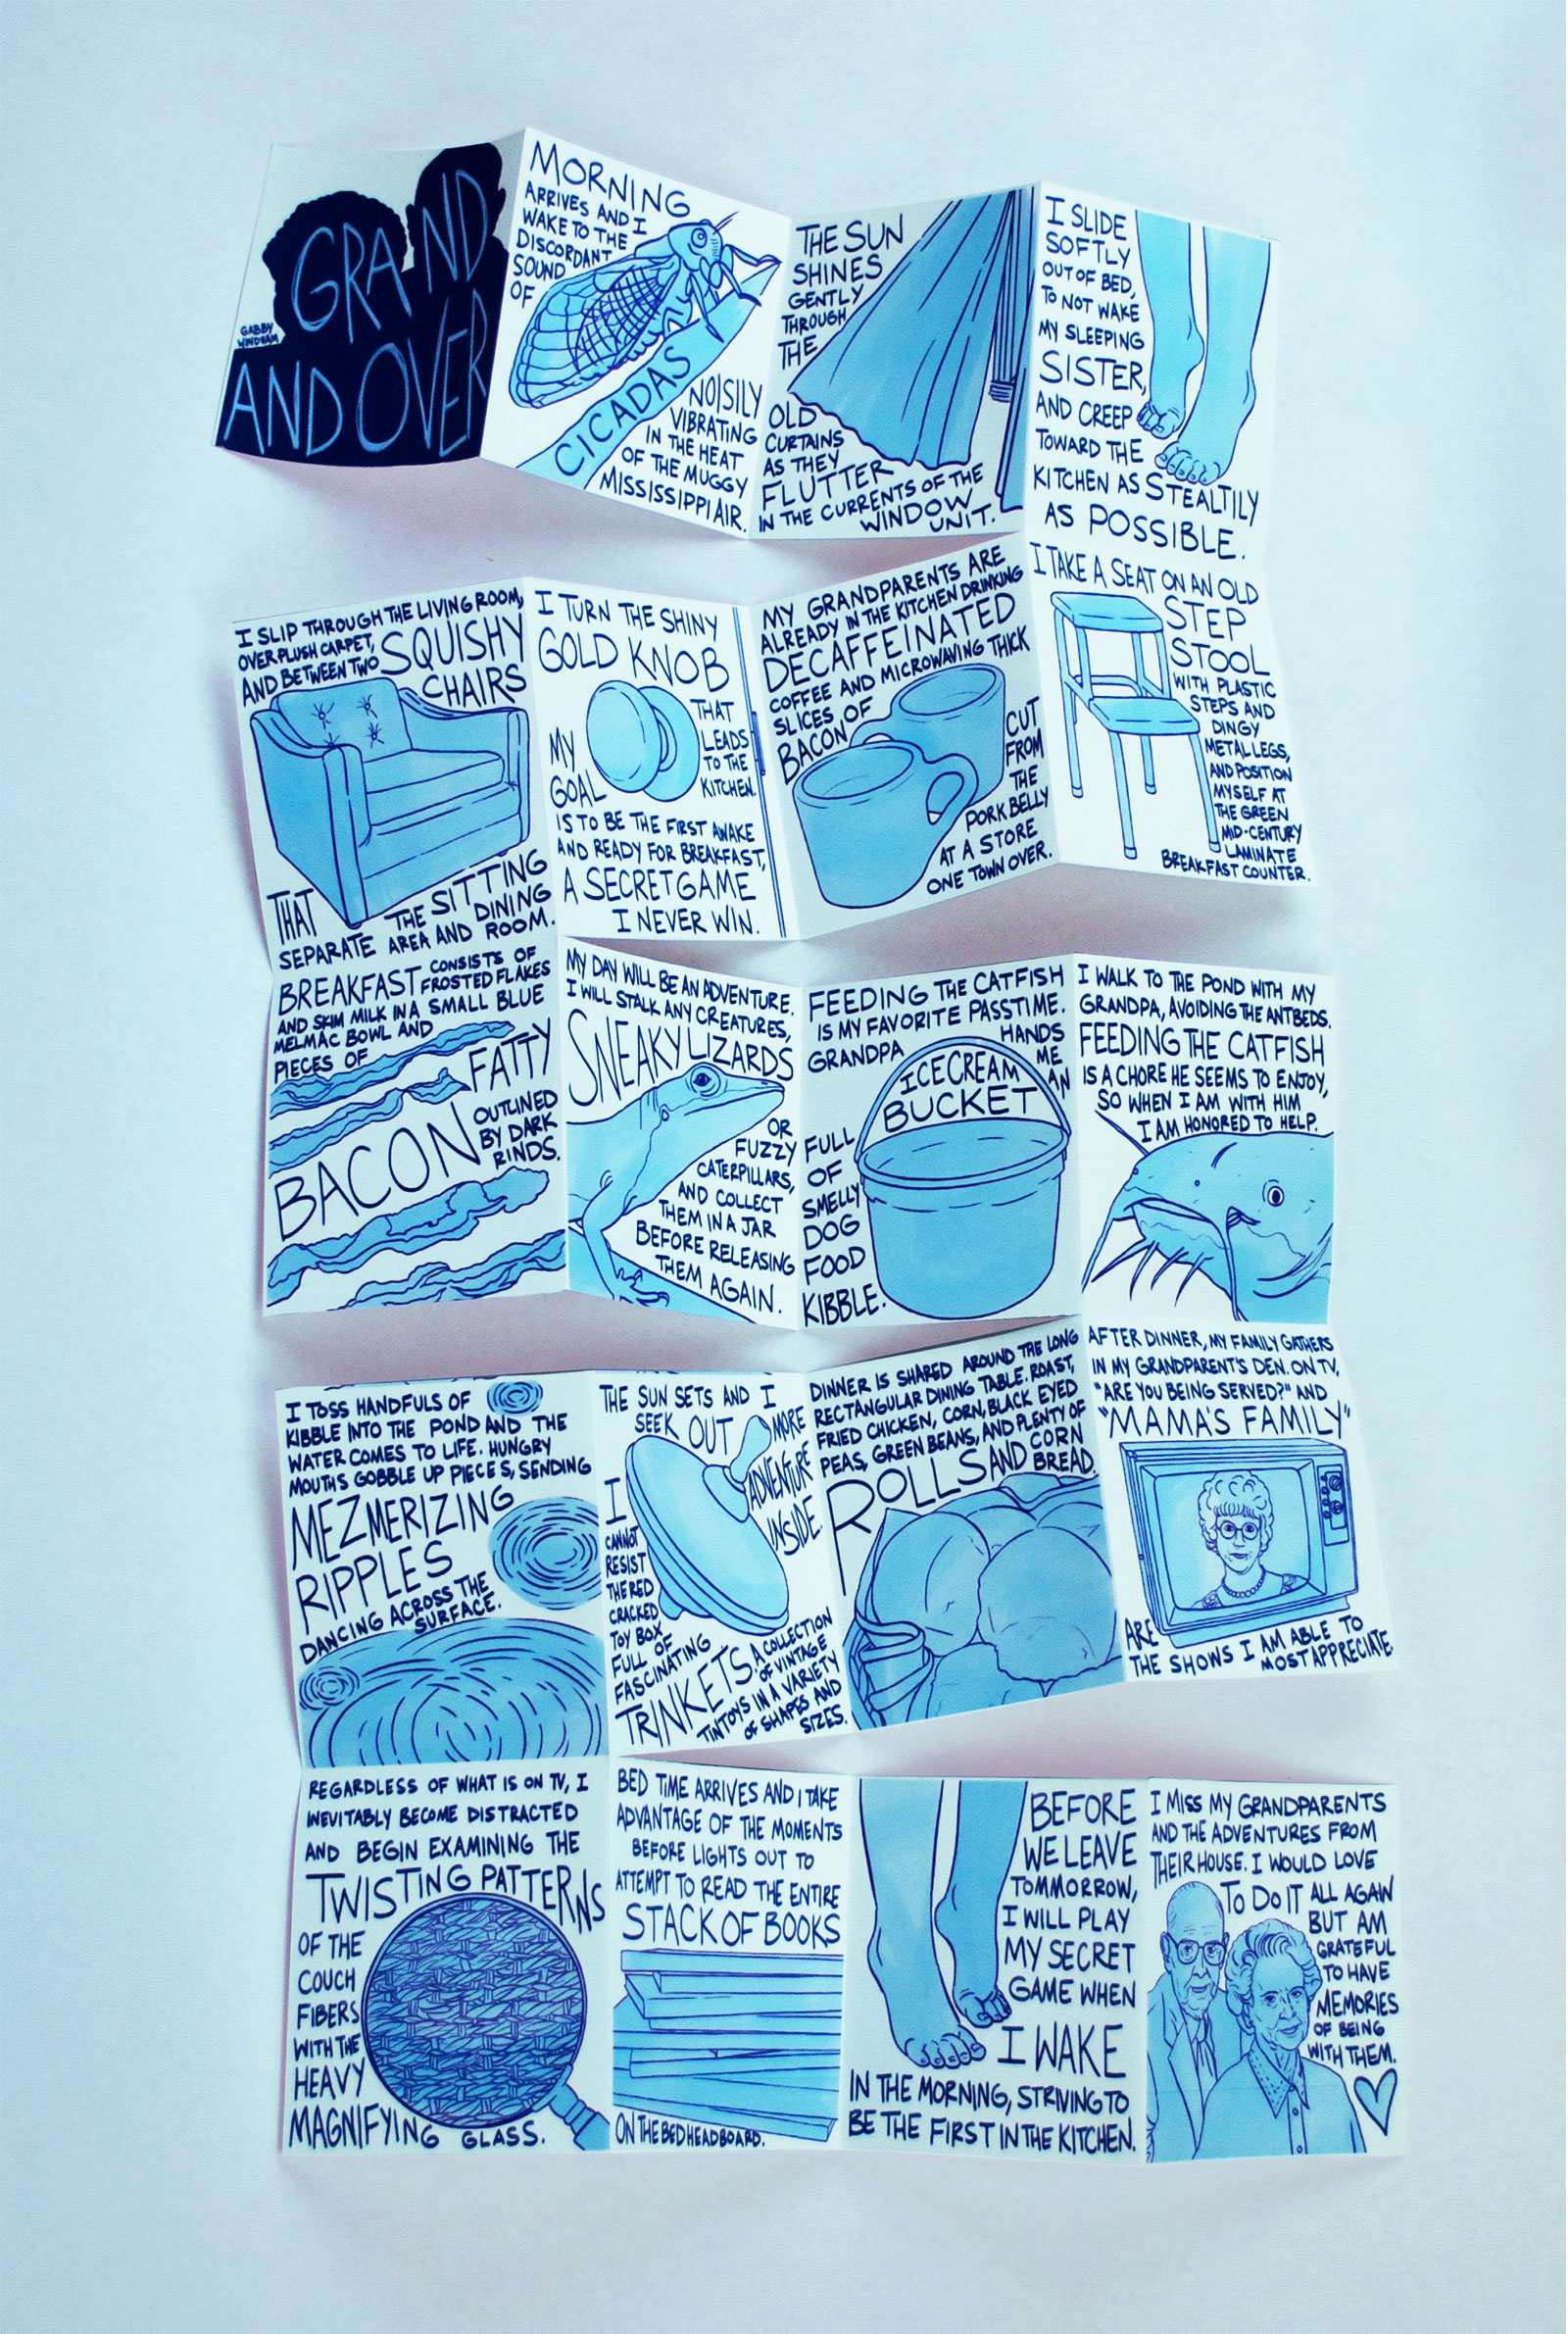 GRAND
AND OVER
GABBY
WINDHAM
MORNING
ARRIVES AND I
WAKE TO THE
DISCORDANT
SOUND
OF
CICADAS
NOISILY
VIBRATING
IN THE HEAT
OF THE MUGGY
MISSISSIPPI AIR.
THE SUN
SHINES
GENTLY
THROUGH
THE
OLD
CURTAINS
AS THEY
FLUTTER
IN THE CURRENTS OF THE
WINDOW
UNIT.
I SLIDE
SOFTLY
OUT OF BED,
TO NOT WAKE
MY SLEEPING
SISTER,
AND CREEP
TOWARD THE
KITCHEN AS STEALTILY
AS POSSIBLE.
I SLIP THROUGH THE LIVING ROOM,
OVER PLUSH CARPET,
AND BETWEEN TWO SQUISHY
CHAIRS
THAT
SEPARATE THE SITTING
AREA AND DINING
ROOM.
I TURN THE SHINY
GOLD KNOB
THAT
LEADS
TO THE
KITCHEN.
MY
GOAL
IS TO BE THE FIRST AWAKE
AND READY FOR BREAKFAST,
A SECRET GAME
I NEVER WIN.
MY GRANDPARENTS ARE
ALREADY IN THE KITCHEN DRINKING
DECAFFEINATED
COFFEE AND MICROWAVING THICK
SLICES OF
BACON
CUT
FROM
THE
PORK BELLY
AT A STORE
ONE TOWN OVER.
I TAKE A SEAT ON AN OLD
STEP
STOOL
WITH PLASTIC
STEPS AND
DINGY
METAL LEGS,
AND POSITION
MYSELF AT
THE GREEN
MID-CENTURY
LAMINATE
BREAKFAST COUNTER.
BREAKFAST CONSISTS OF
FROSTED FLAKES
AND SKIM MILK IN A SMALL BLUE
MELMAC BOWL AND
PIECES OF
FATTY
BACON
OUTLINED
BY DARK
RINDS.
MY DAY WILL BE AN ADVENTURE.
I WILL STALK ANY CREATURES,
SNEAKY LIZARDS
OR
FUZZY
CATERPILLARS,
AND COLLECT
THEM IN A JAR
BEFORE RELEASING
THEM AGAIN.
FEEDING THE CATFISH
IS MY FAVORITE PASSTIME.
GRANDPA HANDS
ME
AN
ICECREAM
BUCKET
FULL
OF
SMELLY
DOG
FOOD
KIBBLE.
I WALK TO THE POND WITH MY
GRANDPA, AVOIDING THE ANTBEDS.
FEEDING THE CATFISH
IS A CHORE HE SEEMS TO ENJOY,
SO WHEN I AM WITH HIM
I AM HONORED TO HELP.
I TOSS HANDFULS OF
KIBBLE INTO THE POND AND THE
WATER COMES TO LIFE. HUNGRY
MOUTHS GOBBLE UP PIECES, SENDING
MEZMERIZING
RIPPLES
DANCING ACROSS THE
SURFACE.
THE SUN SETS AND I
SEEK OUT
MORE
ADVENTURE
INSIDE.
I
CANNOT
RESIST
THE RED
CRACKED
TOY BOX
FULL OF
FASCINATING
TRINKETS
A COLLECTION
OF VINTAGE
TIN TOYS IN A VARIETY
OF SHAPES AND
SIZES.
DINNER IS SHARED AROUND THE LONG
RECTANGULAR DINING TABLE. ROAST,
FRIED CHICKEN, CORN, BLACK EYED
PEAS, GREEN BEANS, AND PLENTY OF
ROLLS AND CORN
BREAD.
AFTER DINNER, MY FAMILY GATHERS
IN MY GRANDPARENT'S DEN. ON TV,
"ARE YOU BEING SERVED?" AND
"MAMA'S FAMILY"
ARE
THE SHOWS I AM ABLE TO
MOST APPRECIATE.
REGARDLESS OF WHAT IS ON TV, I
INEVITABLY BECOME DISTRACTED
AND BEGIN EXAMINING THE
TWISTING PATTERNS
OF THE
COUCH
FIBERS
WITH THE
HEAVY
MAGNIFYING GLASS.
BED TIME ARRIVES AND I TAKE
ADVANTAGE OF THE MOMENTS
BEFORE LIGHTS OUT TO
ATTEMPT TO READ THE ENTIRE
STACK OF BOOKS
ON THE BED HEADBOARD.
BEFORE
WE LEAVE
TOMMORROW,
I WILL PLAY
MY SECRET
GAME WHEN
I WAKE
IN THE MORNING, STRIVING TO
BE THE FIRST IN THE KITCHEN.
I MISS MY GRANDPARENTS
AND THE ADVENTURES FROM
THEIR HOUSE. I WOULD LOVE
TO DO IT ALL AGAIN
BUT AM
GRATEFUL
TO HAVE
MEMORIES
OF BEING
WITH THEM.